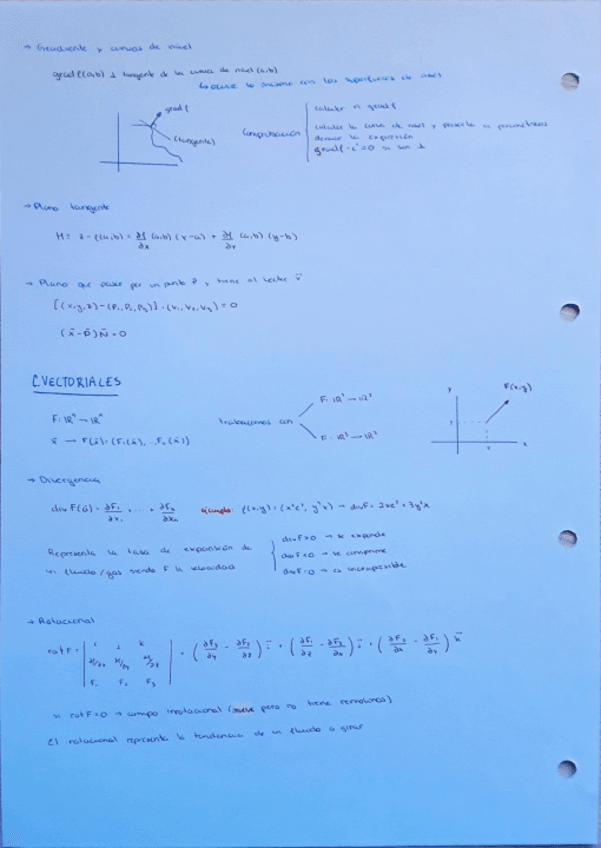 → Gradiente y curvas de nivel
grad f(a,b) ⊥ tangente de la curva de nivel (a,b)
↳ ocurre lo mismo con las superficies de nivel
grad f
(tangente)
Comprobación
calcular el grad f
calcular la curva de nivel y ponerla en paramétricas
derivar la expresión
grad f · c' = 0 si son ⊥
→ Plano tangente
π ≡ z - f(a,b) = ∂f/∂x (a,b) (x-a) + ∂f/∂y (a,b) (y-b)
→ Plano que pasa por un punto P y tiene al vector v⃗
[(x,y,z) - (P₁, P₂, P₃)] · (V₁, V₂, V₃) = 0
(x̄ - p̄) N̄ = 0
C. VECTORIALES
F: ℝⁿ → ℝⁿ
x̄ → F(x̄) = (F₁(x̄), ..., Fₙ(x̄))
trabajamos con
F: ℝ²→ℝ²
F: ℝ³→ℝ³
y
F(x,y)
y
x
x
→ Divergencia
div F(ā) = ∂F₁/∂x₁ + ... + ∂Fₙ/∂xₙ ejemplo: f(x,y) = (x²e², y³x) → div F = 2xe² + 3y²x
Representa la tasa de expansión de
un fluido/gas siendo F la velocidad
div F > 0 → se expande
div F < 0 → se comprime
div F = 0 → es incompresible
→ Rotacional
rot F = | i j k
∂/∂x ∂/∂y ∂/∂z
F₁ F₂ F₃ | = (∂F₃/∂y - ∂F₂/∂z) i⃗ + (∂F₁/∂z - ∂F₃/∂x) j⃗ + (∂F₂/∂x - ∂F₁/∂y) k⃗
si rot F = 0 → campo irrotacional (mueve pero no tiene remolinos)
El rotacional representa la tendencia de un fluido a girar